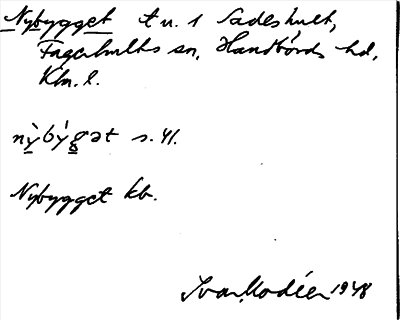 Nybygget t u. 1 Sadeshult,
Fagerhults sn, Handbörds hd,
Klm. l.
nỳbýgət s. 41.
Nybygget kb.
Ivar Modéer 1948